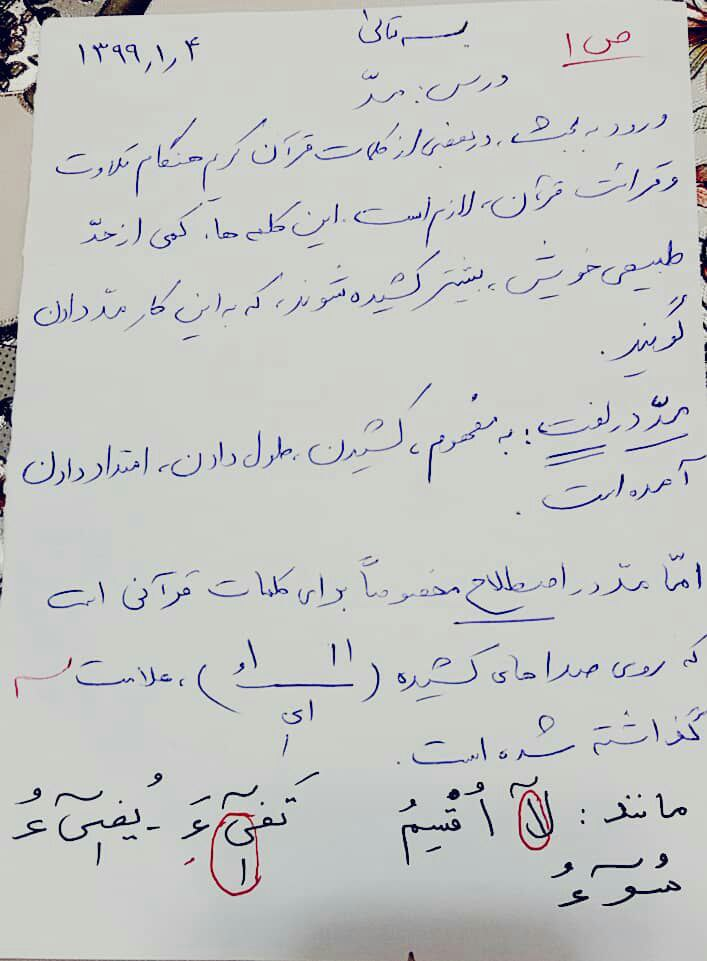 ص ۱
بسمه تعالی
۱۳۹۹٫۱٫۴
درس: مدّ
ورود به بحث، در بعضی از کلمات قرآن کریم هنگام تلاوت
و قرائت قرآن، لازم است. این کلمه ها، کمی از حدّ
طبیعی خویش، بیشتر کشیده شوند، که به این کار مدّ دادن
گویند.
مدّ در لغت: به مفهوم، کشیدن، طول دادن، امتداد دادن
آمده است.
امّا مدّ در اصطلاح مخصوصاً برای کلمات قرآنی است
که روی صداهای کشیده (اا او ای)، علامت ٓ
گذاشته شده است.
مانند: لآ اُقْسِمُ تَفیٓءَ - یُفیٓءُ
سُوٓءُ